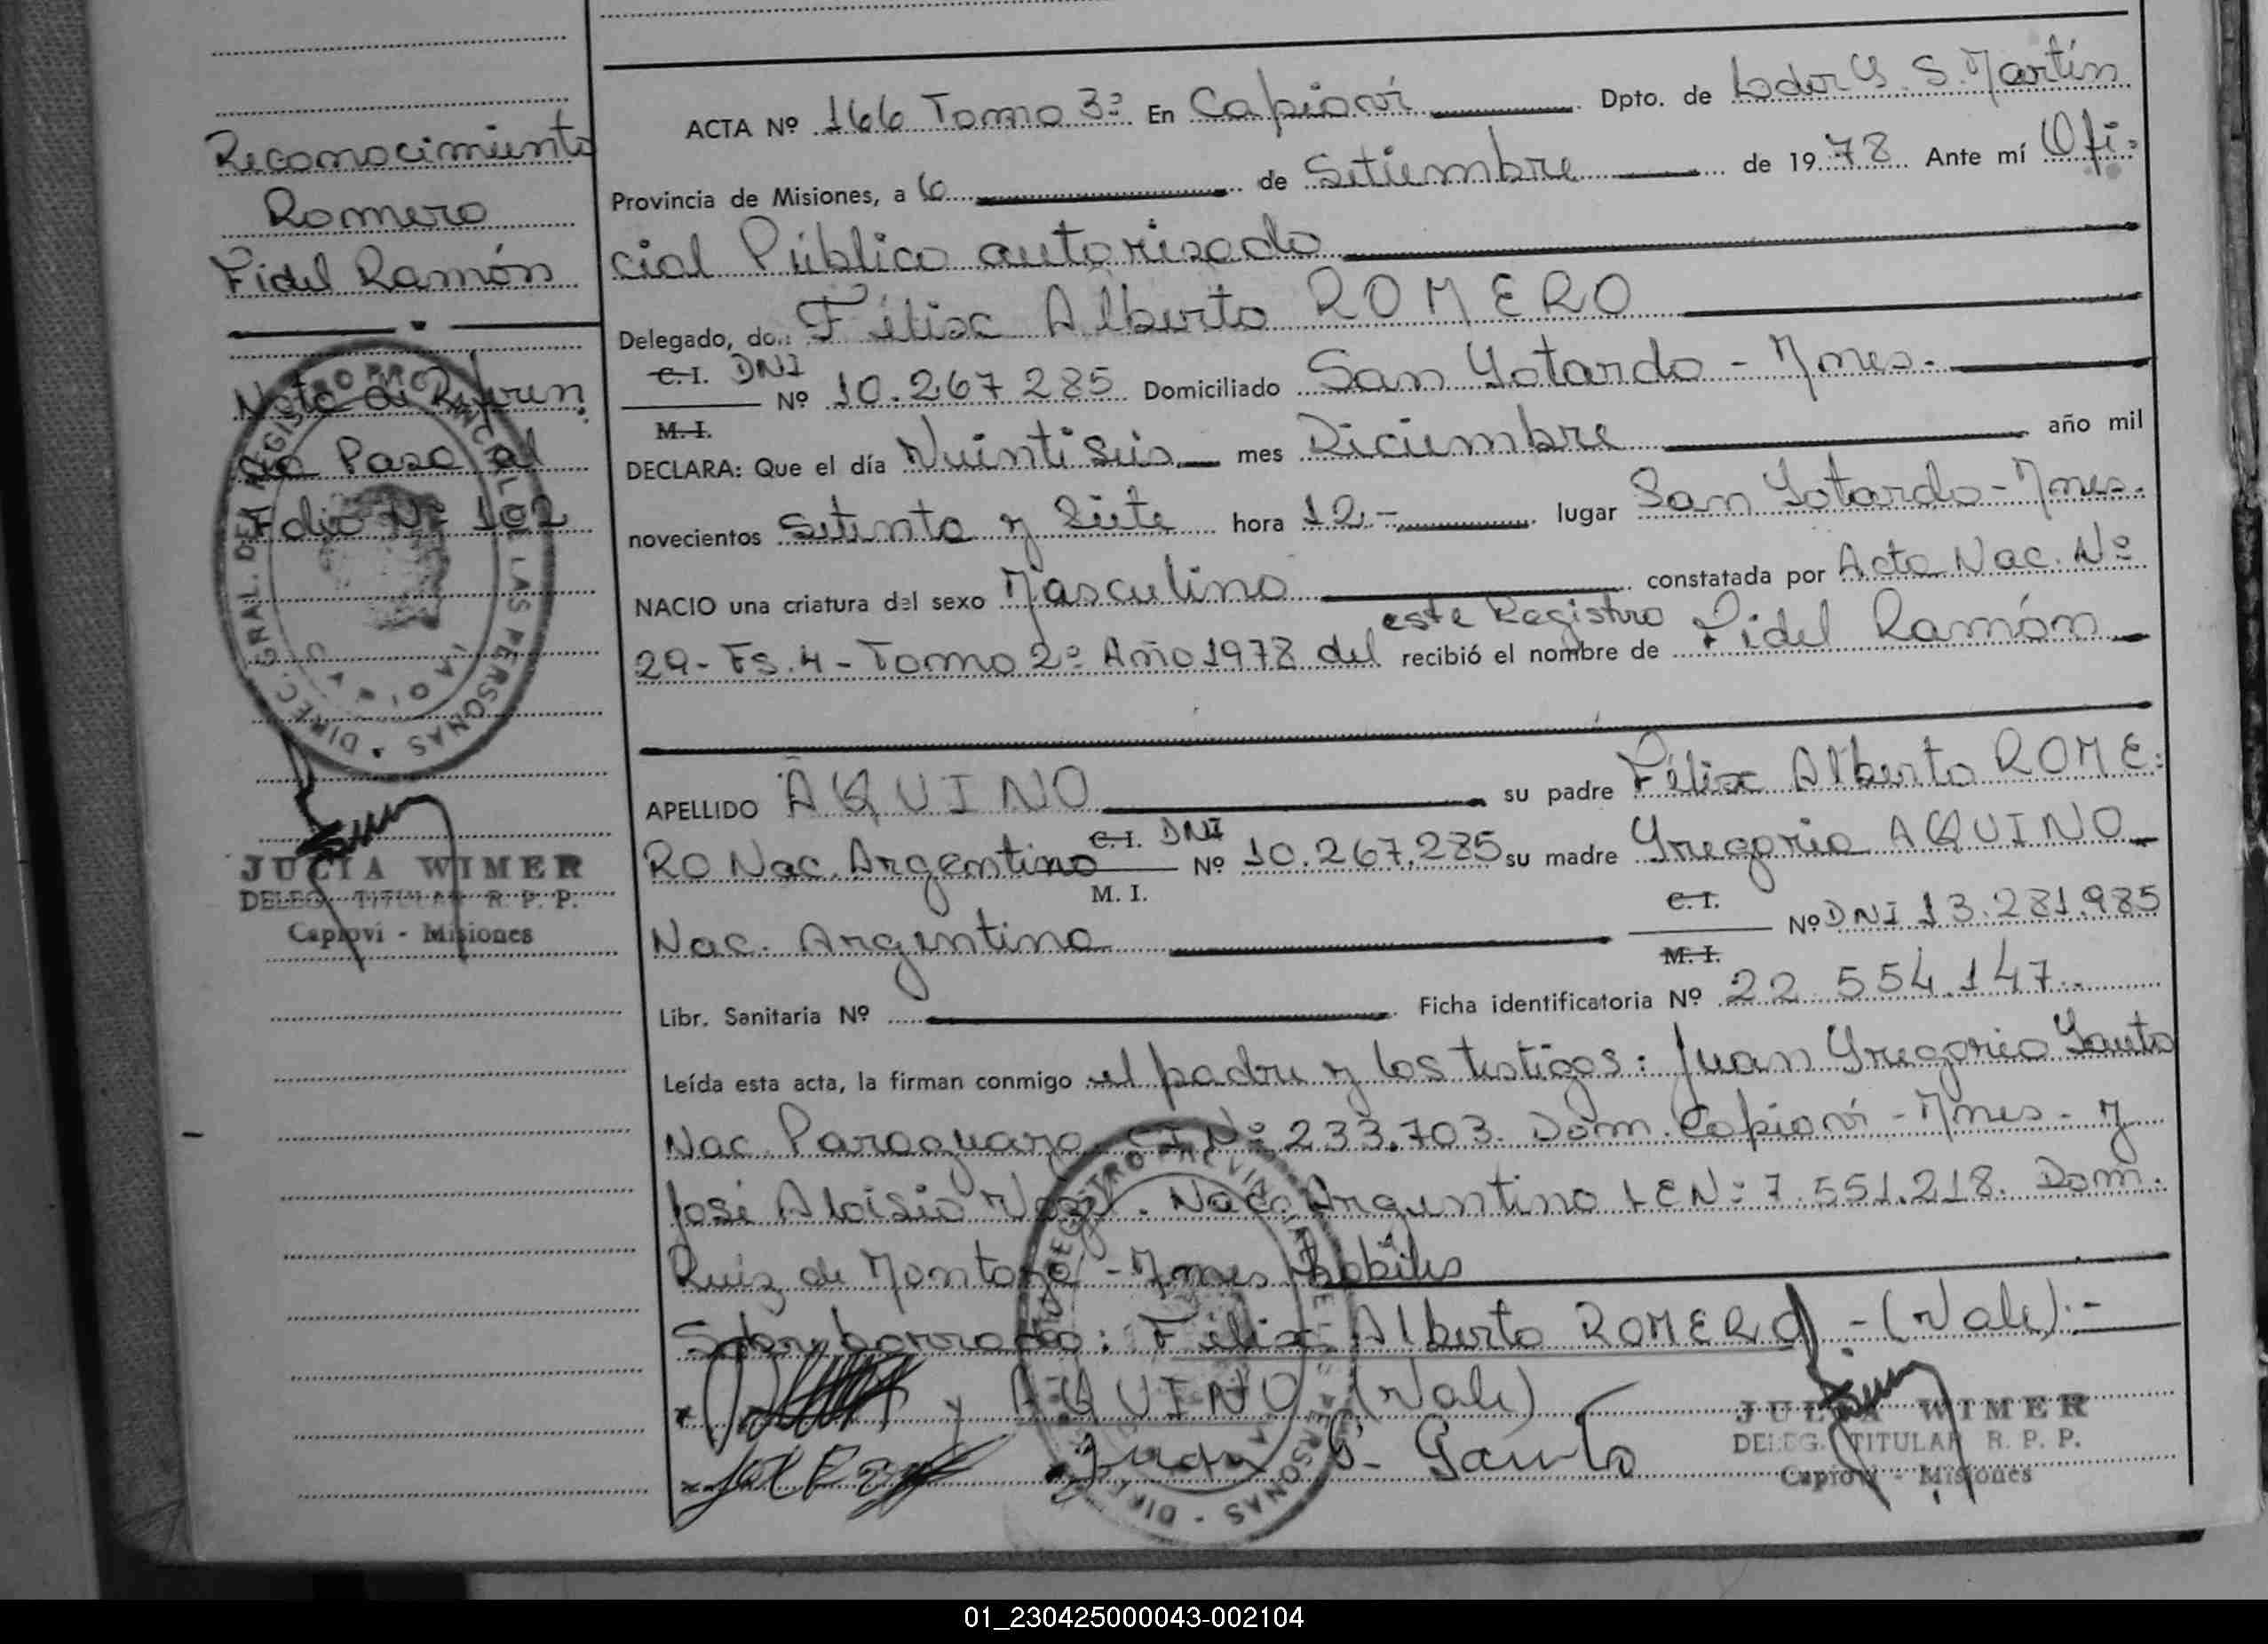 Reconocimiento
Romero
Fidel Ramón
Nota de Referen
cia Paso al
Folio Nº 102
DIREC. GRAL. DEL REGISTRO PROVINCIAL DE LAS PERSONAS
JULIA WIMER
DELEG. TITULAR R. P. P.
Capioví - Misiones
ACTA Nº 166 Tomo 3º En Capioví Dpto. de Ldor G. S. Martín
Provincia de Misiones, a 6 de Setiembre de 1978 Ante mí Ofi-
cial Público autorizado
Delegado, do.: Félix Alberto ROMERO
C. I. DNI
M. I. Nº 10.267.285 Domiciliado San Gotardo - Mnes.
DECLARA: Que el día Veintiseis mes Diciembre año mil
novecientos Setenta y Siete hora 12.- lugar San Gotardo - Mnes.
NACIO una criatura del sexo Masculino constatada por Acta Nac. Nº
29 - Fs. 4 - Tomo 2º Año 1978 del este Registro recibió el nombre de Fidel Ramón
APELLIDO AQUINO su padre Félix Alberto ROME-
RO Nac. Argentino C. I. DNI M. I. Nº 10.267.285 su madre Gregoria AQUINO
Nac. Argentina C. I. M. I. Nº DNI 13.281.985
Libr. Sanitaria Nº Ficha identificatoria Nº 22.554.147
Leída esta acta, la firman conmigo el padre y los testigos: Juan Gregorio Gauto
Nac. Paraguayo. CI Nº 233.703. Dom. Capioví - Mnes - y
José Aloisio. Nac. Argentino LE Nº 7.551.218. Dom.
Ruiz de Montoya - Mnes Hábiles
Sobreborrado: Félix Alberto ROMERO - (Vale).-
y AQUINO (Vale)
Juan G. Gauto
DIREC. REGISTRO PROVINCIAL DE LAS PERSONAS
JULIA WIMER
DELEG. TITULAR R. P. P.
Capioví - Misiones
01_230425000043-002104